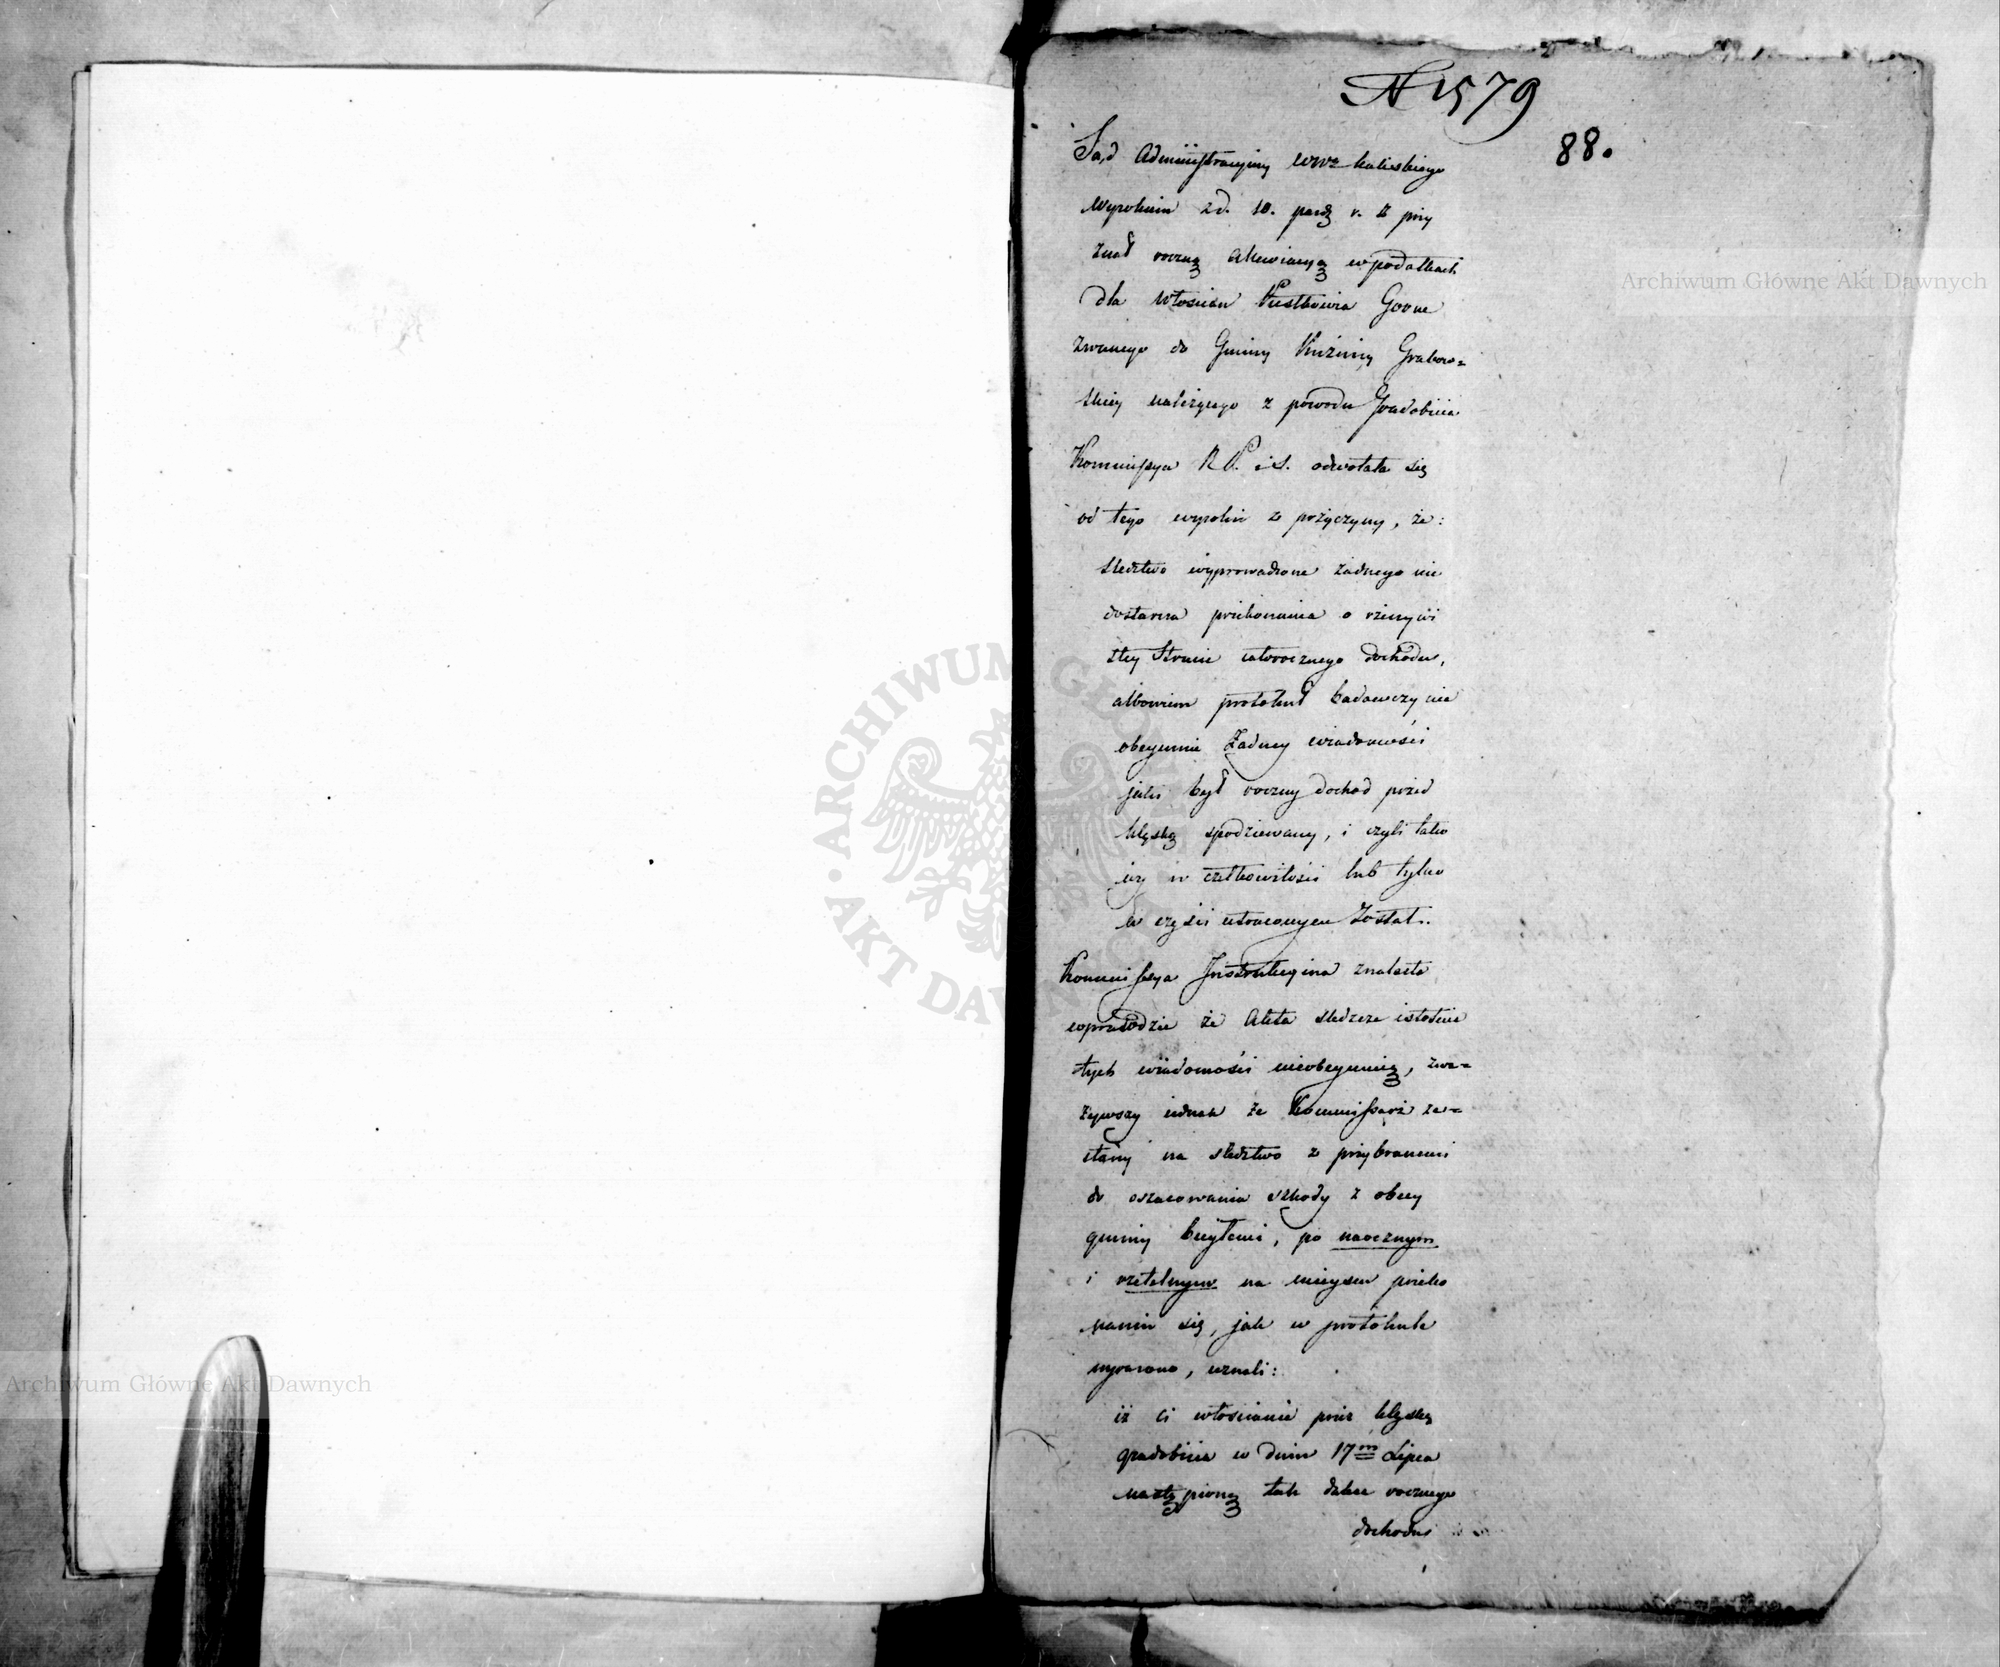 N 1579
88.
Sąd Administracyiny wwa kaliskiego
Wyrokiem z d. 10. paźdz r. z przy
znał roczną Allewiacyą w podatkach
dla Włościan Pustkowia Gorne
zwanego do Gminy Kuźnicy Grabow=
skiey należącego z powodu Gradobicia
Kommissya R P. i S. odwołała się
od tego wyroku z przyczyny, że:
śledztwo wyprowadzone żadnego nie
dostarcza przekonania o rzeczywi
stey stracie całorocznego dochodu,
albowiem protokuł badawczy nie
obeymuie żadney wiadomości
jaki był roczny dochod przed
klęską spodziewany, i czyli tako
wy w całkowitości lub tylko
w części utraconym został.
Kommissya Instrukcyina znalazła
wprawdzie że Akta śledcze istotnie
tych wiadomości nieobeymuią, zwa=
żywszy iednak że Kommissarz ze=
słany na śledztwo z przybranemi
do oszacowania szkody z obcey
gminy biegłemi, po naocznym
i rzetelnym na mieyscu przeko
naniu się, jak w protokule
wyrażono, uznali:
iż ci włościanie przez klęskę
gradobicia w dniu 17m Lipca
nastąpioną tak dalece rocznego
dochodu
Archiwum Główne Akt Dawnych
Archiwum Główne Akt Dawnych
ARCHIWUM GŁÓWNE AKT DAWNYCH